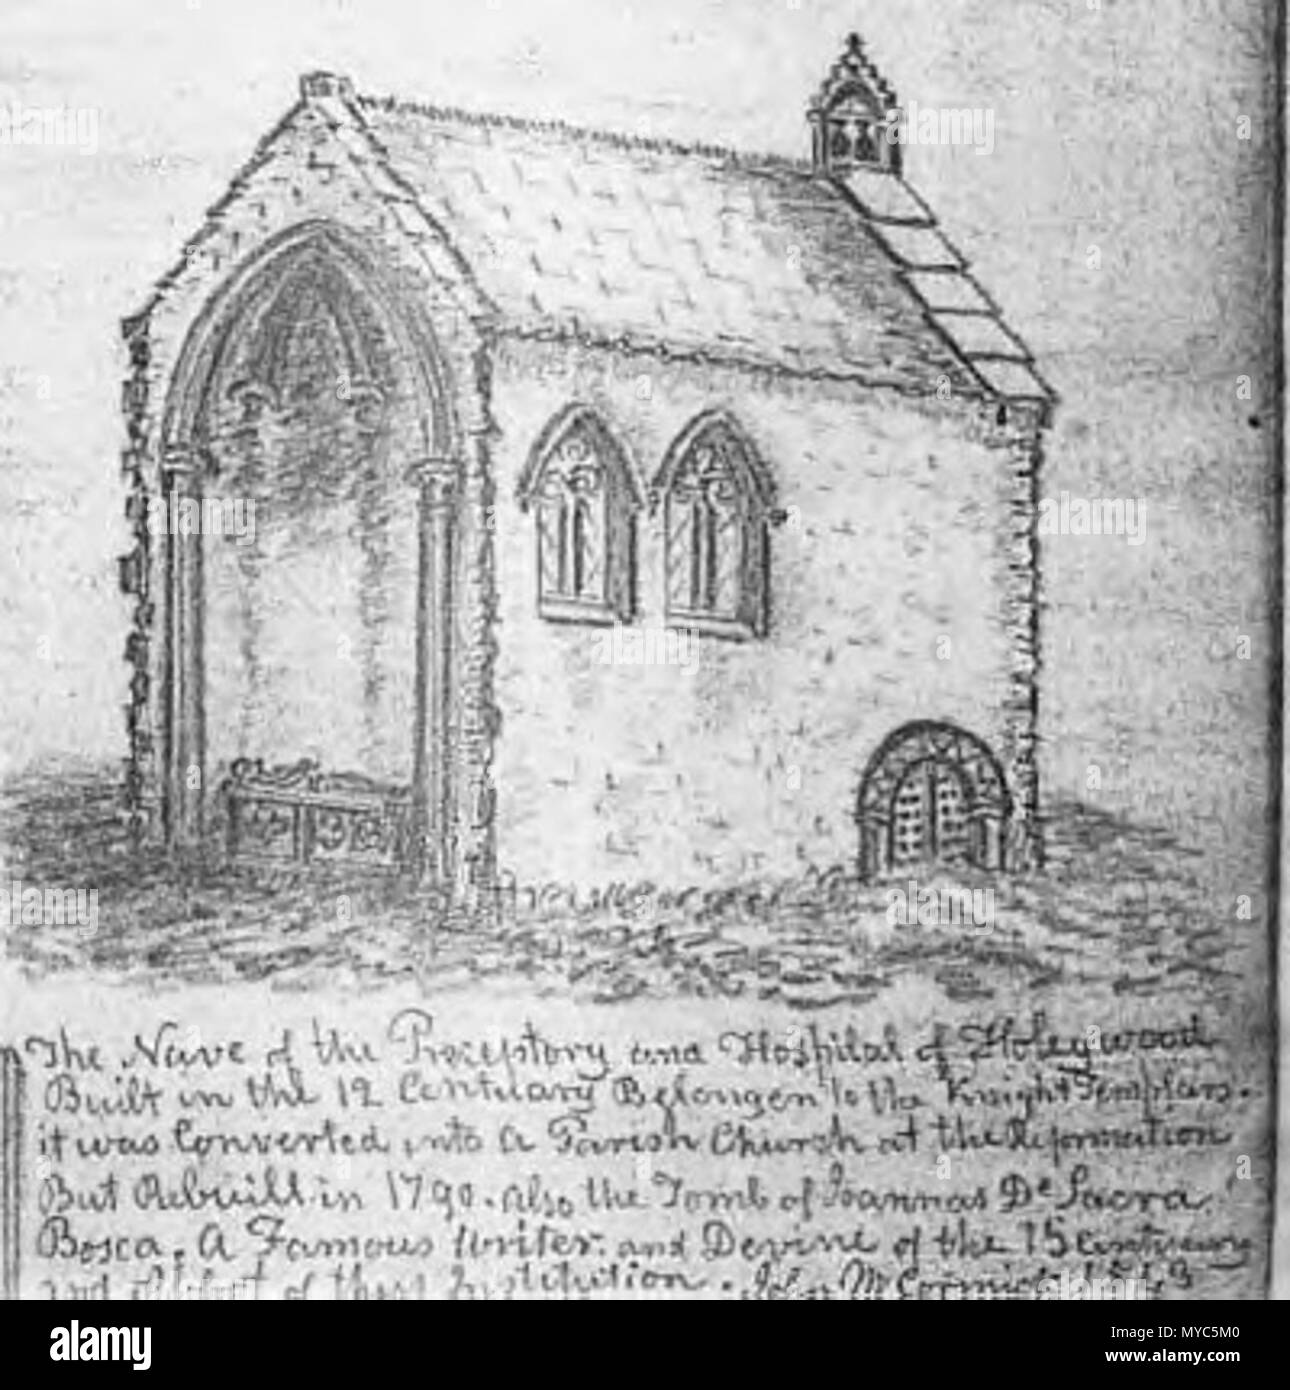 The Nave of the Preceptory and Hospital of Holeywood
Built in the 12 Centuary Belongen to the Knight Templars.
it was Converted into a Parish Church at the Reformation
But Rebuill in 1790. also the Tomb of Joannas De Sacra
Bosca. A Famous Writer. and Devine of the 13 Centuary
and of this Institution. John McCormick
alamy
Image ID: MYC5M0
www.alamy.com